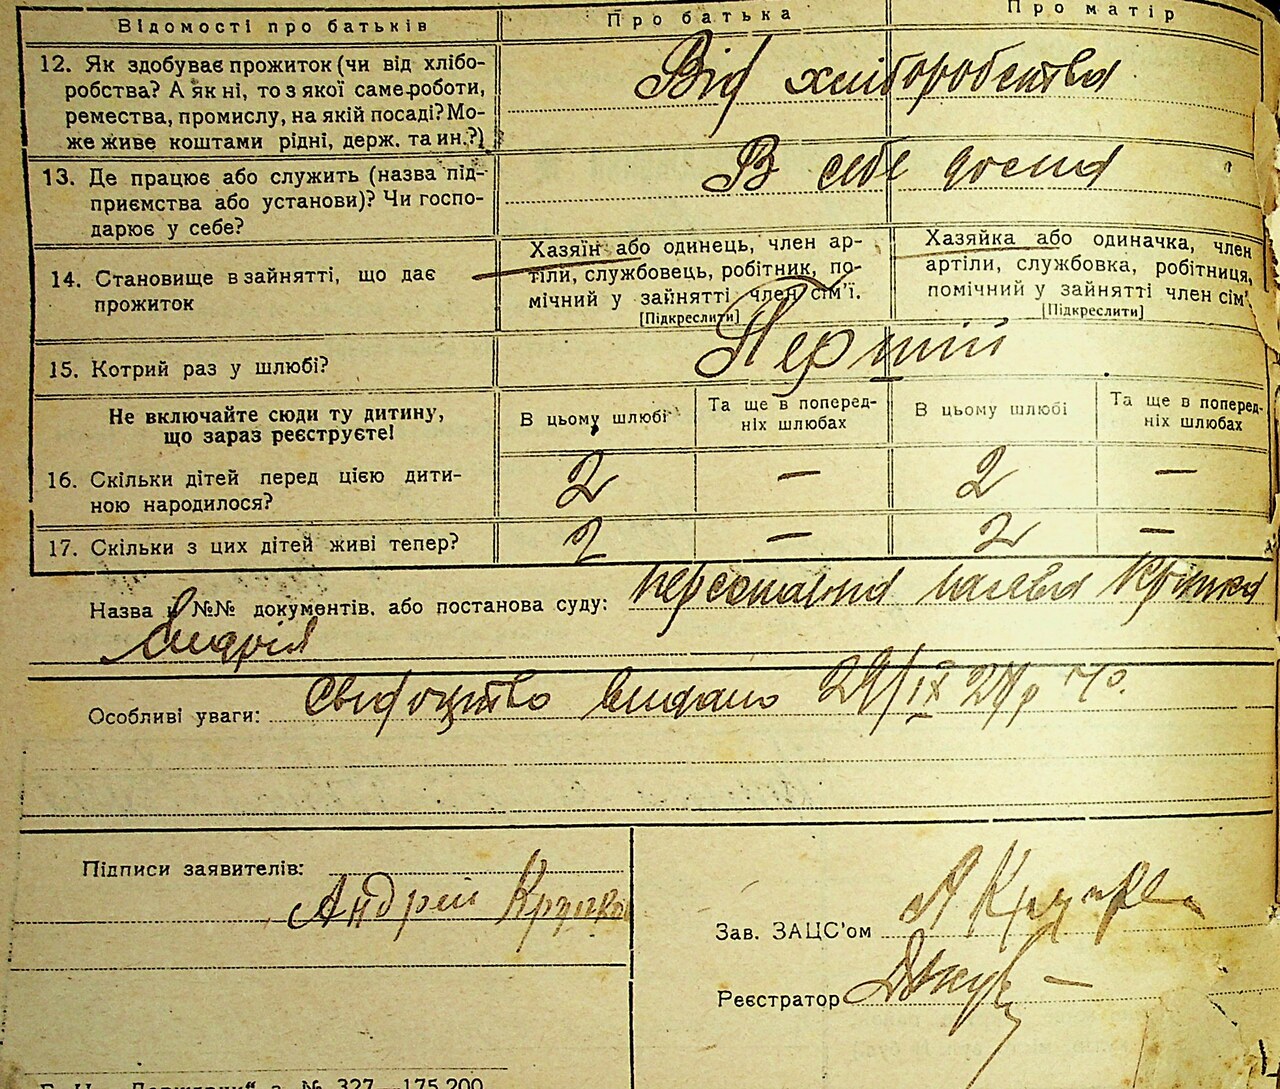 Відомості про батьків
Про батька
Про матір
12. Як здобуває прожиток (чи від хлібо-
робства? А як ні, то з якої саме роботи,
ремества, промислу, на якій посаді? Мо-
же живе коштами рідні, держ. та ин.?)
Від хліборобства
13. Де працює або служить (назва під-
приємства або установи)? Чи госпо-
дарює у себе?
В себе дома
14. Становище в зайнятті, що дає
прожиток
Хазяїн або одинець, член ар-
тіли, службовець, робітник, по-
мічний у зайнятті член сім'ї.
[Підкреслити]
Хазяйка або одиначка, член
артіли, службовка, робітниця,
помічний у зайнятті член сім'ї
[Підкреслити]
15. Котрий раз у шлюбі?
Перший
Не включайте сюди ту дитину,
що зараз реєструєте!
В цьому шлюбі
Та ще в поперед-
ніх шлюбах
В цьому шлюбі
Та ще в поперед-
ніх шлюбах
16. Скільки дітей перед цією дити-
ною народилося?
2 — 2 —
17. Скільки з цих дітей живі тепер?
2 — 2 —
Назва і №№ документів. або постанова суду: персональна заява
Андрія
Особливі уваги: Свідоцтво видано 29/IX 24 р
Підписи заявителів:
Андрей
Зав. ЗАЦС'ом
Реєстратор
№ 327—175.200